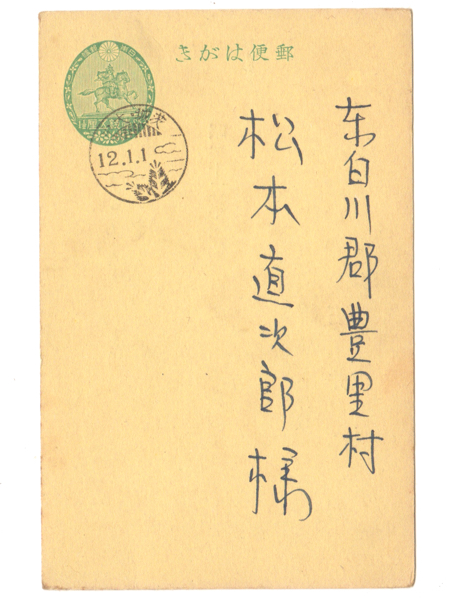 郵便はがき
東白川郡豊里村
松本直次郎様
12.1.1